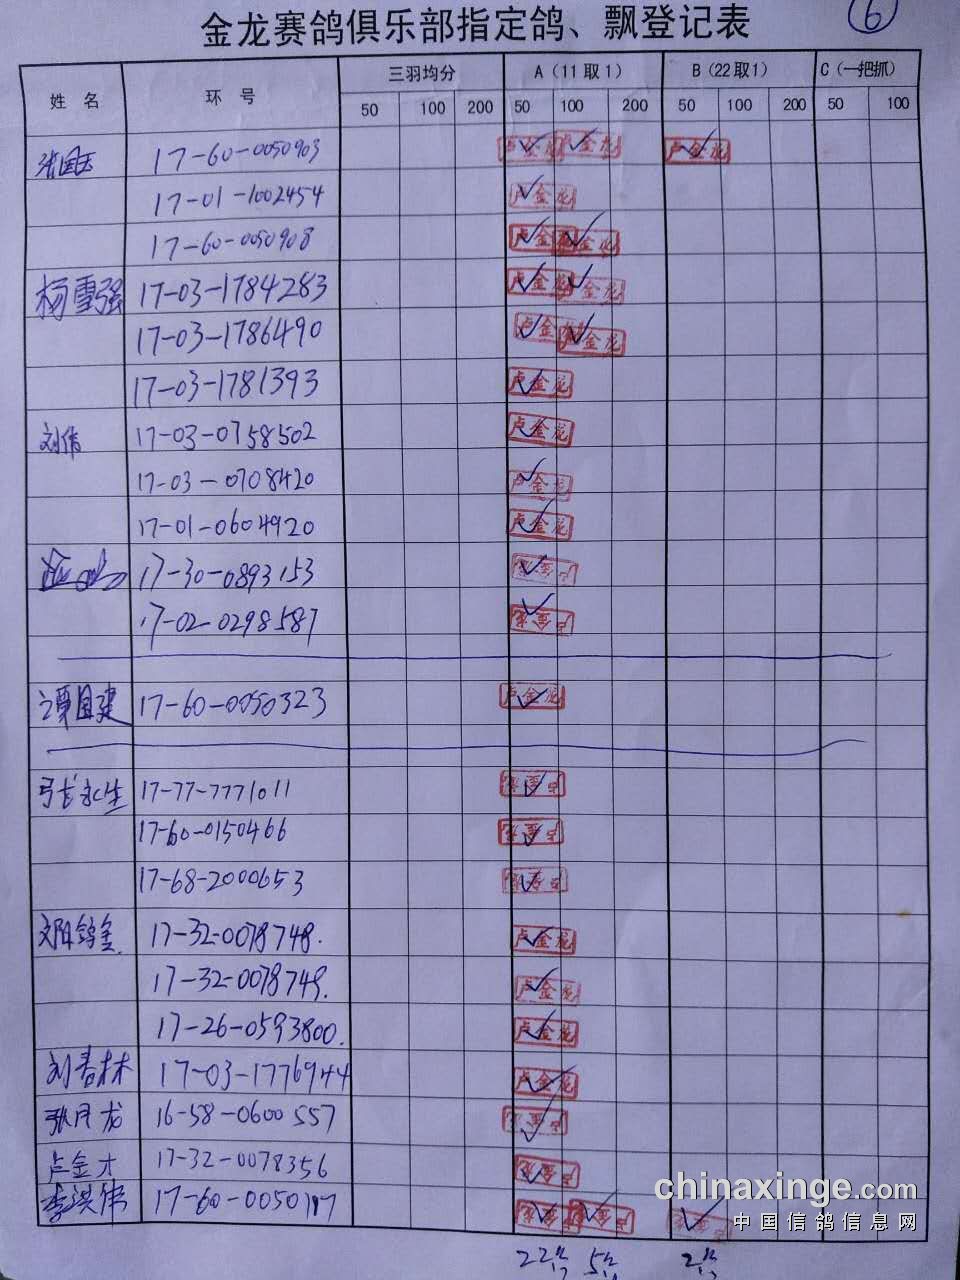 金龙赛鸽俱乐部指定鸽、飘登记表
6
姓 名 环 号 三羽均分 A（11取1） B（22取1） C（一把抓）
50 100 200 50 100 200 50 100 200 50 100
17-60-0050903 卢金龙 卢金龙 卢金龙
17-01-1002454 卢金龙
17-60-0050908 卢金龙 卢金龙
杨雪强 17-03-1784283 卢金龙 卢金龙
17-03-1786490 卢金龙 卢金龙
17-03-1781393 卢金龙
刘伟 17-03-0758502 卢金龙
17-03-0708420 卢金龙
17-01-0604920 卢金龙
17-30-0893153 卢金龙
17-02-0298587 卢金龙
谭国建 17-60-0050323 卢金龙
张永生 17-77-7771011 卢金龙
17-60-0150466 卢金龙
17-68-2000653 卢金龙
17-32-0078748. 卢金龙
17-32-0078749. 卢金龙
17-26-0593800. 卢金龙
刘春林 17-03-1776944 卢金龙
张月龙 16-58-0600557 卢金龙
卢金才 17-32-0078356 卢金龙
李洪伟 17-60-0050197 卢金龙 卢金龙 卢金龙
22 5 2
chinaxinge.com
中国信鸽信息网